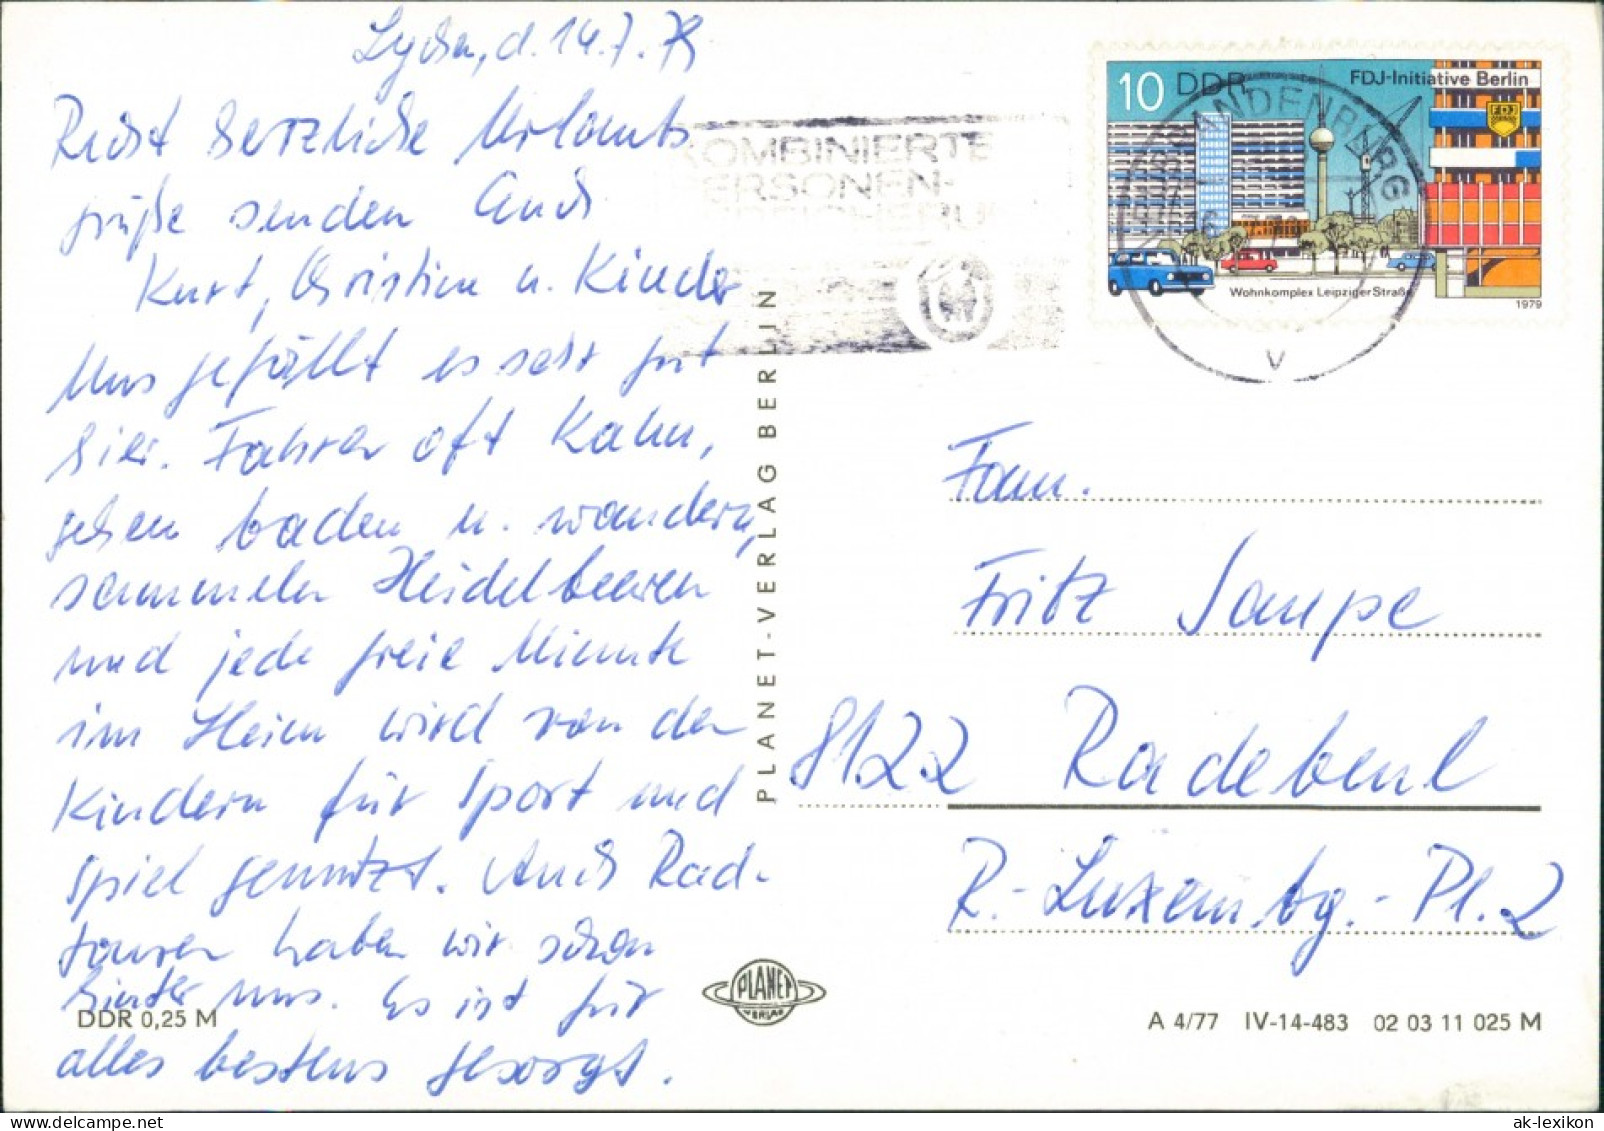 Lychen, d. 14.7.79
Recht herzliche Urlaubs-
grüße senden Euch
Kurt, Christina u. Kinder
Uns gefällt es sehr gut
hier. Fahren oft Kahn,
gehen baden u. wandern,
sammeln Heidelbeeren
und jede freie Minute
im Heim wird von den
Kindern für Sport und
Spiel genutzt. Auch Rad-
touren haben wir schon
hinter uns. Es ist für
alles bestens gesorgt.
DDR 0,25 M
PLANET-VERLAG BERLIN
PLANET
VERLAG
KOMBINIERTE
PERSONEN-
10 DDR
FDJ-Initiative Berlin
FDJ
Wohnkomplex Leipziger Straße
1979
BRANDENBURG
V
Fam.
Fritz Sampe
8122 Radebeul
R.-Luxembg.-Pl. 2
A 4/77 IV-14-483 02 03 11 025 M
ak-lexikon